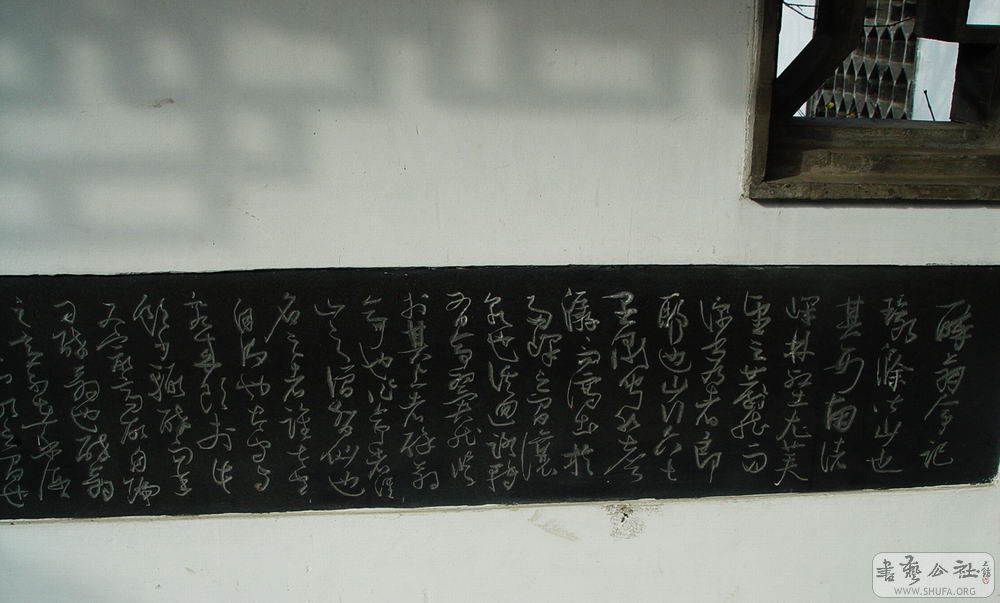 醉翁亭记
環滁皆山也
其西南諸
峰林壑尤美
望之蔚然而
深秀者瑯
耶也山行六七
里漸聞水聲
潺潺而瀉出於
兩峰之間讓
泉也峰回路轉
有亭翼然臨
於其上者醉翁
亭也作亭者誰
山之僧智仙也
名之者誰太守
自謂也太守與
客來飲於此
飲少輒醉而年
又最高故自號
曰醉翁也醉翁
之意不在酒
書藝公社
WWW.SHUFA.ORG